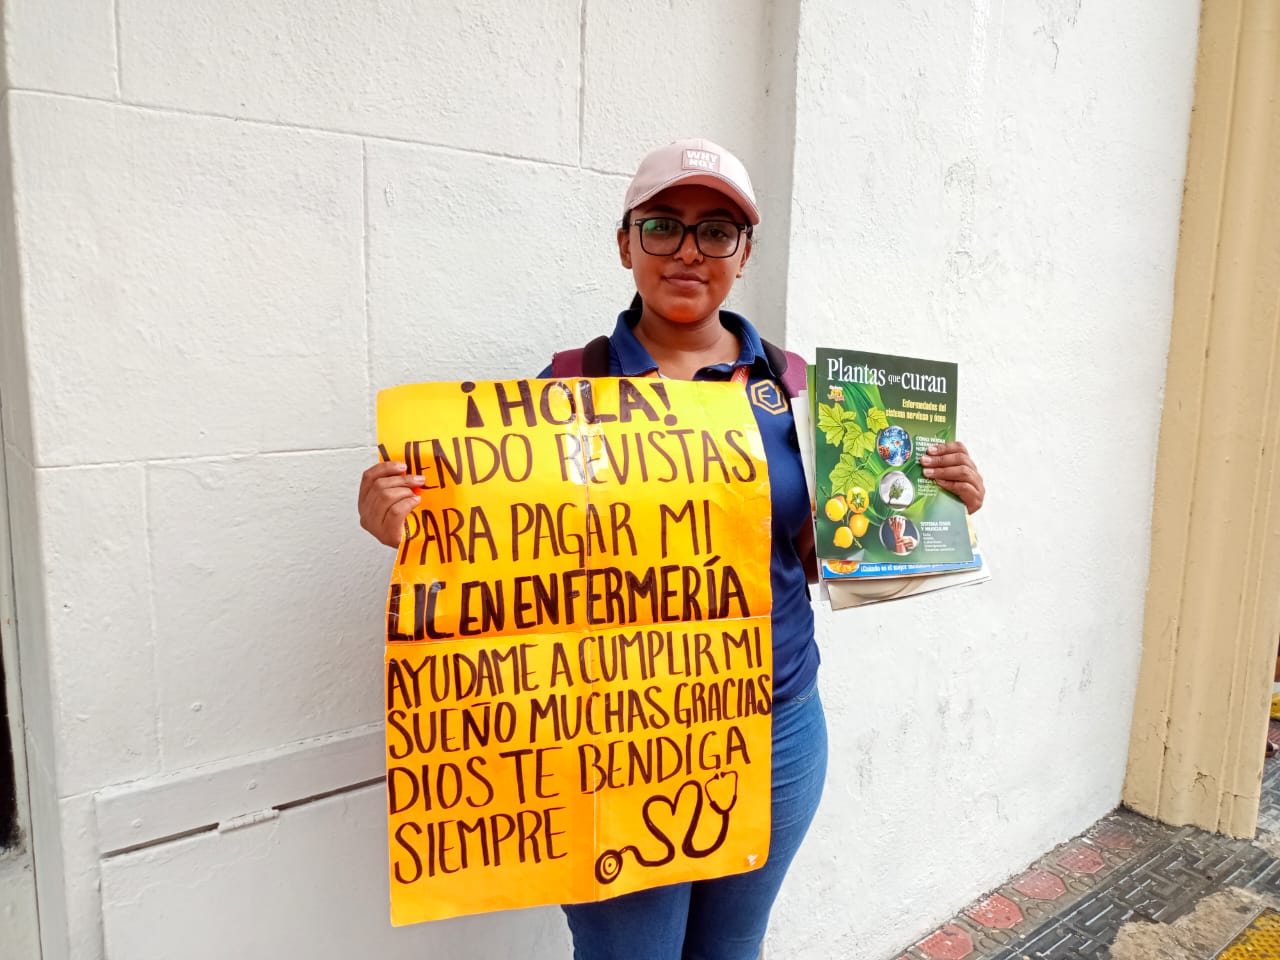 WHY
NOT
¡HOLA!
VENDO REVISTAS
PARA PAGAR MI
LIC EN ENFERMERÍA
AYUDAME A CUMPLIR MI
SUEÑO MUCHAS GRACIAS
DIOS TE BENDIGA
SIEMPRE
Plantas que curan
Enfermedades del
sistema nervioso y óseo
SISTEMA ÓSEO
Y MUSCULAR
¿Cuándo es el mejor